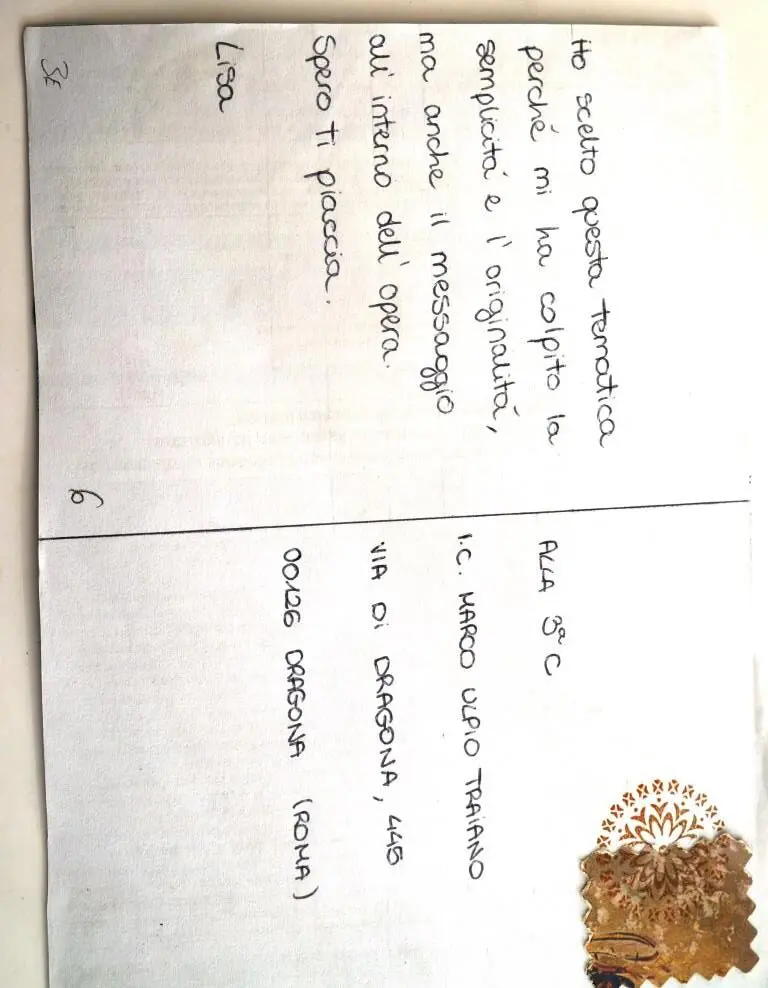 Ho scelto questa tematica
perché mi ha colpito la
semplicitá e l'originalitá,
ma anche il messaggio
all'interno dell'opera.
Spero ti piaccia.
Lisa
3E
6
ALLA 3ª C
I.C. MARCO ULPIO TRAIANO
VIA DI DRAGONA, 445
00126 DRAGONA (ROMA)